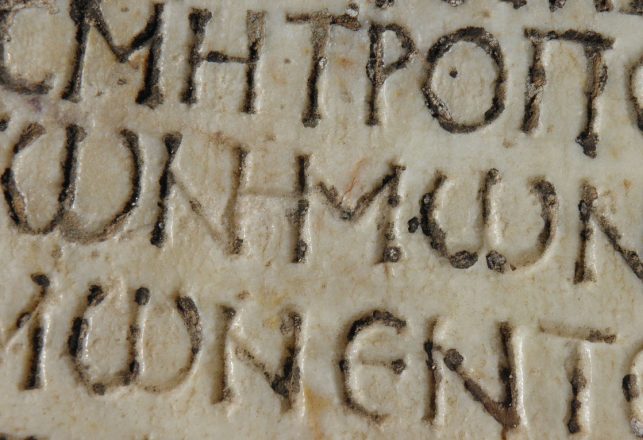 ϹΜΗΤΡΟΠΟ
ωΝΗΜωΝ
ΜωΝЄΝΤΟ